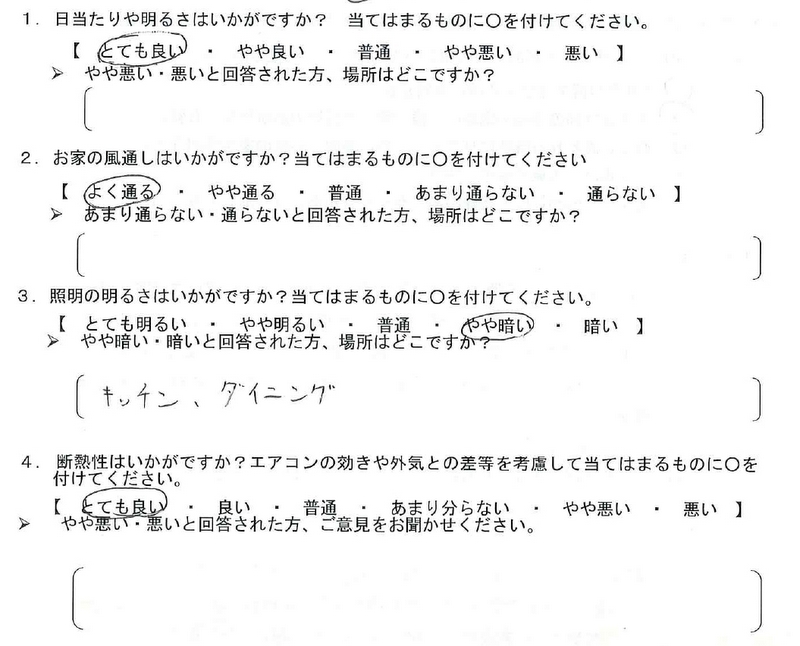 1．日当たりや明るさはいかがですか？　当てはまるものに〇を付けてください。
【　とても良い　・　やや良い　・　普通　・　やや悪い　・　悪い　】
➢　やや悪い・悪いと回答された方、場所はどこですか？
2．お家の風通しはいかがですか？当てはまるものに〇を付けてください
【　よく通る　・　やや通る　・　普通　・　あまり通らない　・　通らない　】
➢　あまり通らない・通らないと回答された方、場所はどこですか？
3．照明の明るさはいかがですか？当てはまるものに〇を付けてください。
【　とても明るい　・　やや明るい　・　普通　・　やや暗い　・　暗い　】
➢　やや暗い・暗いと回答された方、場所はどこですか？
キッチン、ダイニング
4．断熱性はいかがですか？エアコンの効きや外気との差等を考慮して当てはまるものに〇を
付けてください。
【　とても良い　・　良い　・　普通　・　あまり分らない　・　やや悪い　・　悪い　】
➢　やや悪い・悪いと回答された方、ご意見をお聞かせください。